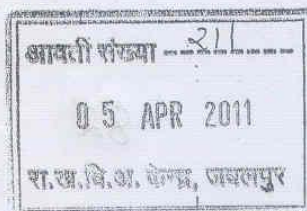 आवती संख्या 211
05 APR 2011
रा.ख.वि.अ. केन्द्र, जबलपुर